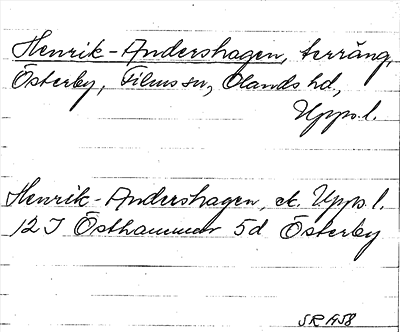 Henrik-Andershagen, terräng,
Österby, Films sn, Olands hd,
Upps. l.
Henrik-Andershagen, ek. Upps. l.
12 I Östhammar 5d Österby
SR A58